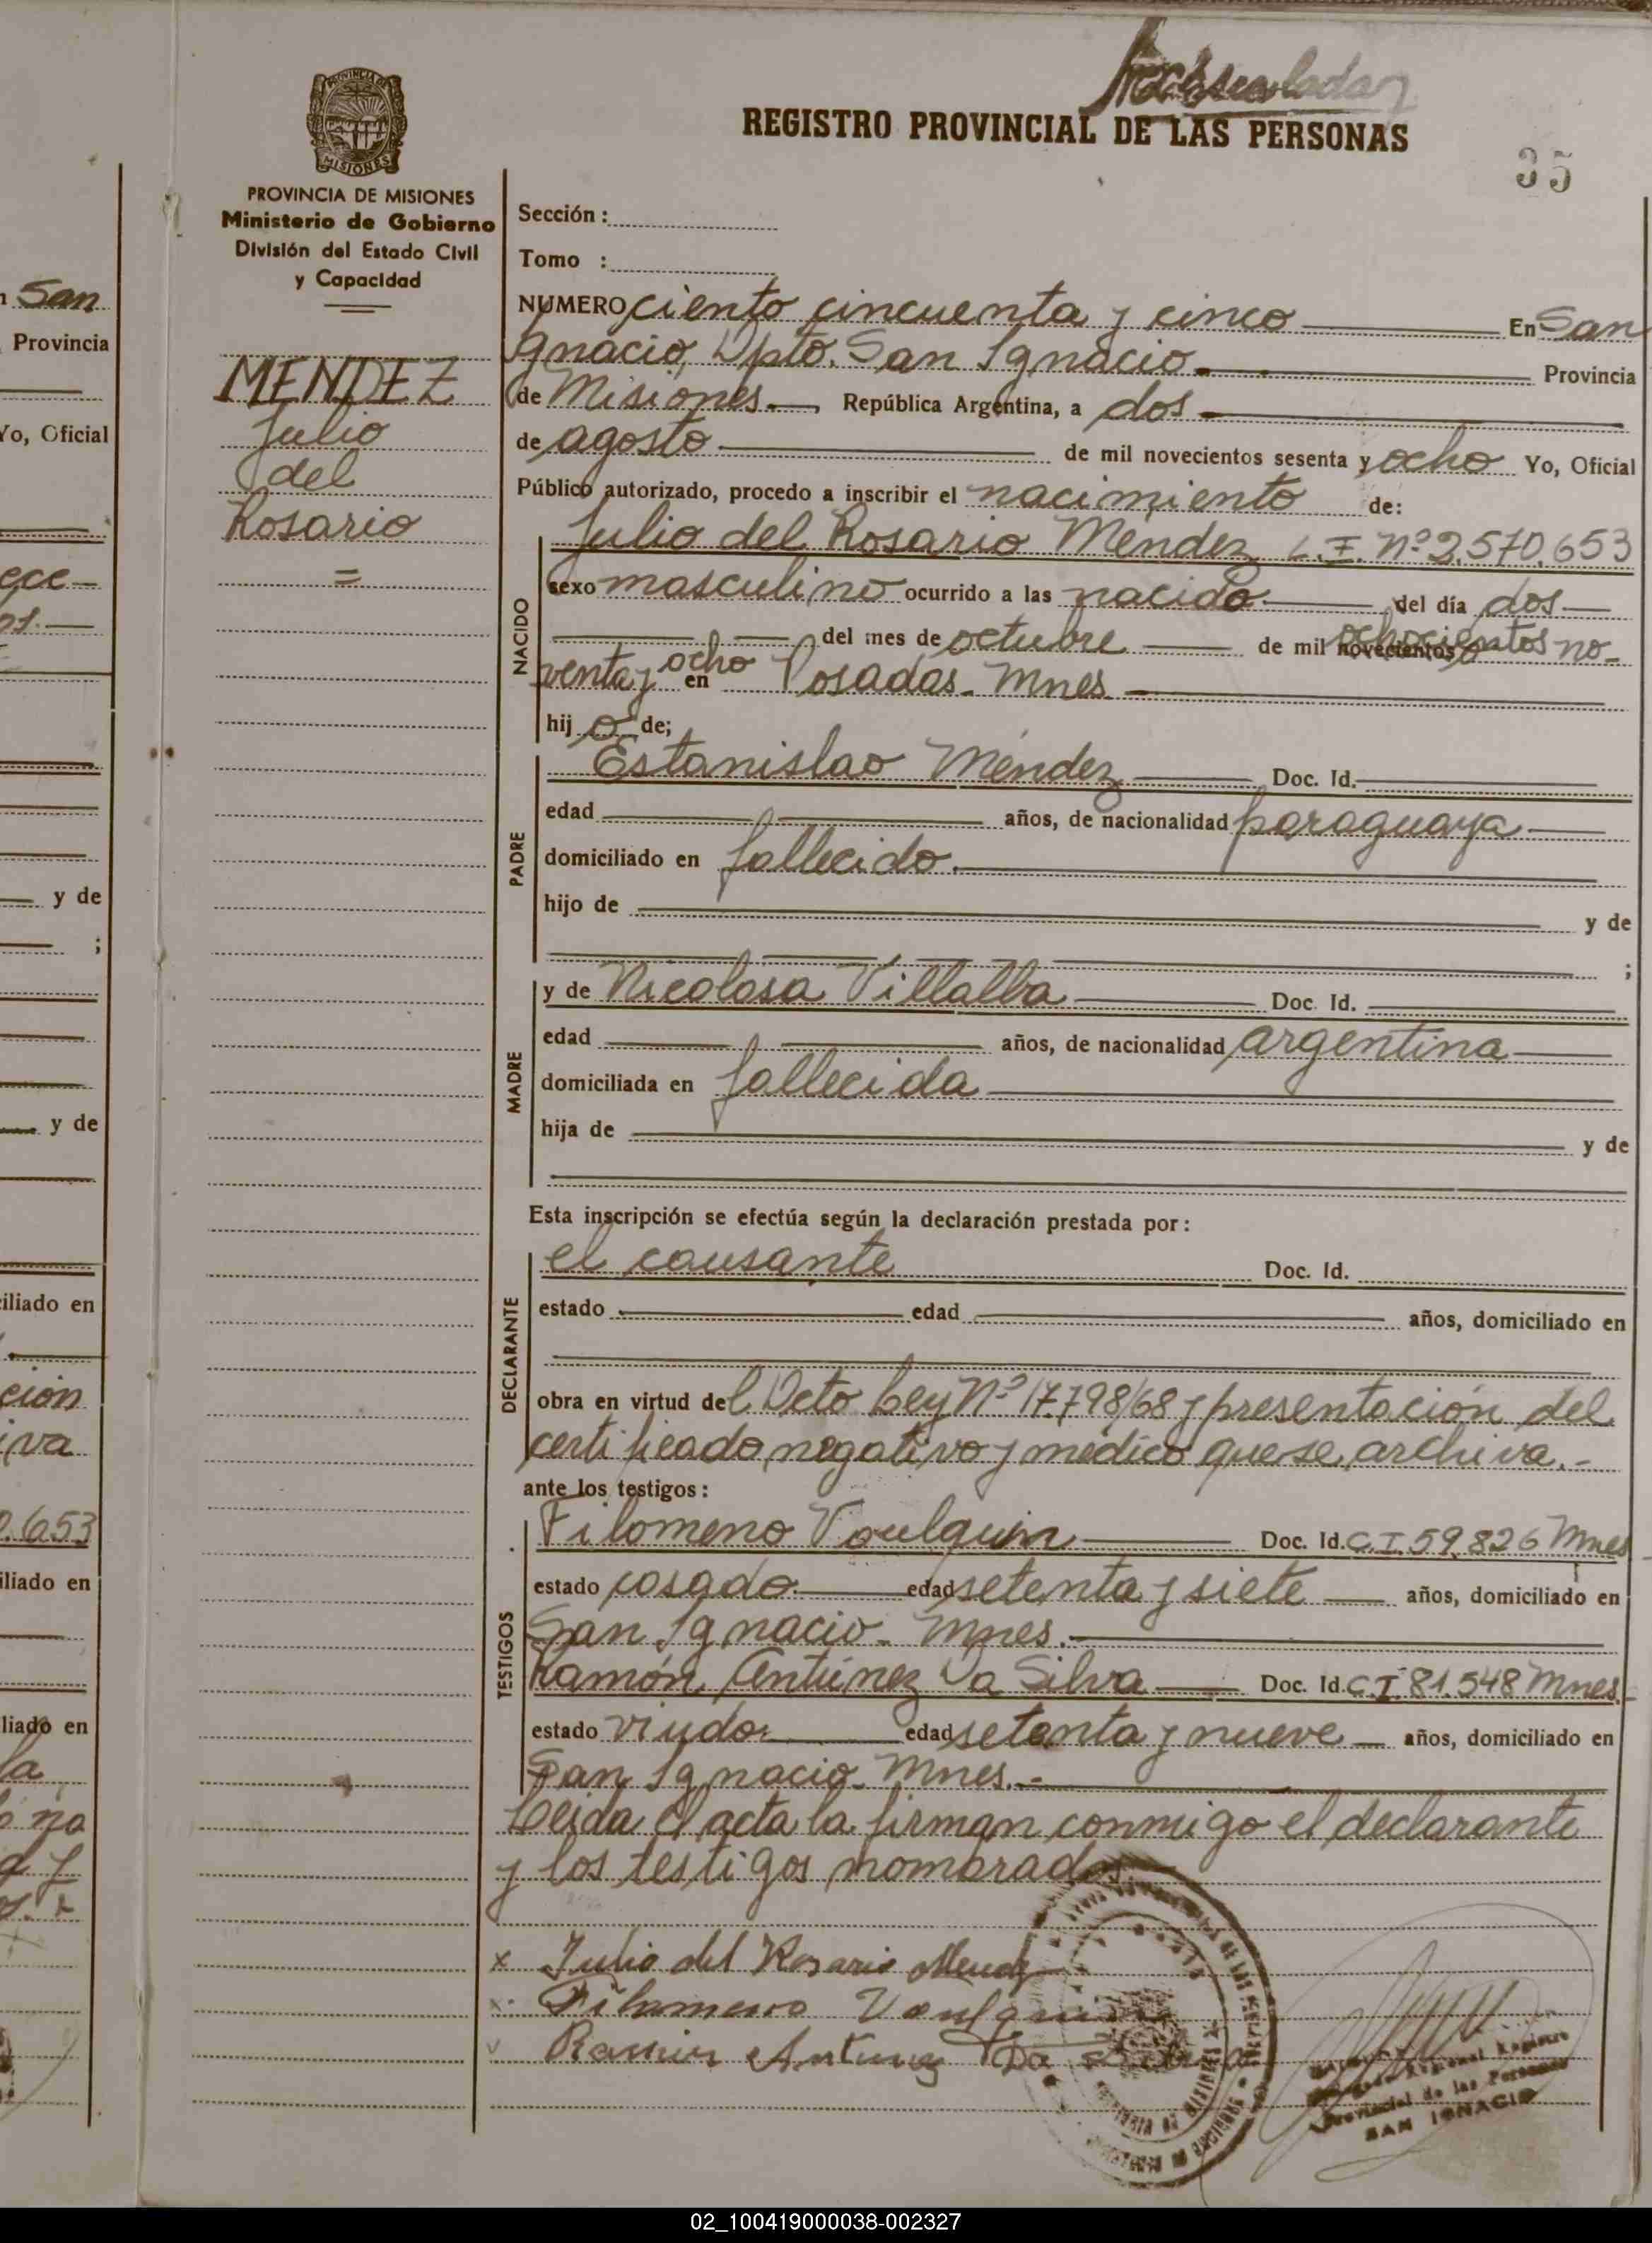 REGISTRO PROVINCIAL DE LAS PERSONAS
35
PROVINCIA DE
MISIONES
PROVINCIA DE MISIONES
Ministerio de Gobierno
División del Estado Civil
y Capacidad
MENDEZ
Julio
del
Rosario
=
Sección :
Tomo :
NUMERO ciento cincuenta y cinco En San
Ignacio, Dpto. San Ignacio. Provincia
de Misiones. República Argentina, a dos
de agosto de mil novecientos sesenta y ocho Yo, Oficial
Público autorizado, procedo a inscribir el nacimiento de:
NACIDO
Julio del Rosario Méndez L.I. nº 2.570.653
sexo masculino ocurrido a las nacido del día dos
del mes de octubre de mil novecientos ochocientos no-
venta y ocho en Posadas. Mnes.
hij o de;
PADRE
Estanislao Méndez Doc. Id.
edad años, de nacionalidad paraguaya
domiciliado en fallecido.
hijo de y de
;
MADRE
y de Nicolasa Villalba Doc. Id.
edad años, de nacionalidad argentina
domiciliada en fallecida
hija de y de
Esta inscripción se efectúa según la declaración prestada por :
DECLARANTE
el causante Doc. Id.
estado edad años, domiciliado en
obra en virtud del Dcto Ley Nº 17.798/68 y presentación del
certificado negativo y médico que se archiva.-
ante los testigos :
TESTIGOS
Filomeno Voulquin Doc. Id. C.I. 59.826 Mnes
estado casado. edad setenta y siete años, domiciliado en
San Ignacio. Mnes.
Ramón Antúnez Da Silva Doc. Id. C.I. 81.548 Mnes.
estado viudo. edad setenta y nueve años, domiciliado en
San Ignacio. Mnes.-
Leída el acta la firman conmigo el declarante
y los testigos mombrados
x Julio del Rosario Mendez
x Filomeno Voulquin
Ramon Antunez Da Silva
Provincial de las Personas
SAN IGNACIO
San
Provincia
Yo, Oficial
y de
;
y de
ciliado en
ción
iva
0.653
iliado en
liado en
la
02_100419000038-002327